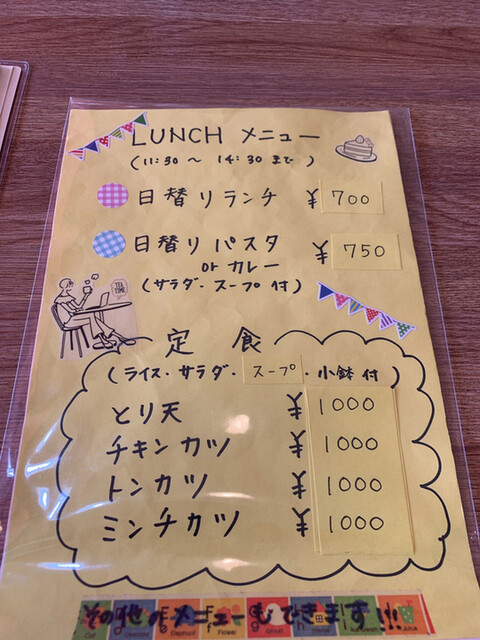 LUNCH メニュー
(11:30 ~ 14:30 まで)
日替りランチ ¥700
日替りパスタ ¥750
or カレー
(サラダ・スープ付)
TEA TIME
定食
(ライス・サラダ・スープ・小鉢付)
とり天 ¥1000
チキンカツ ¥1000
トンカツ ¥1000
ミンチカツ ¥1000
その他のメニューもできます!!